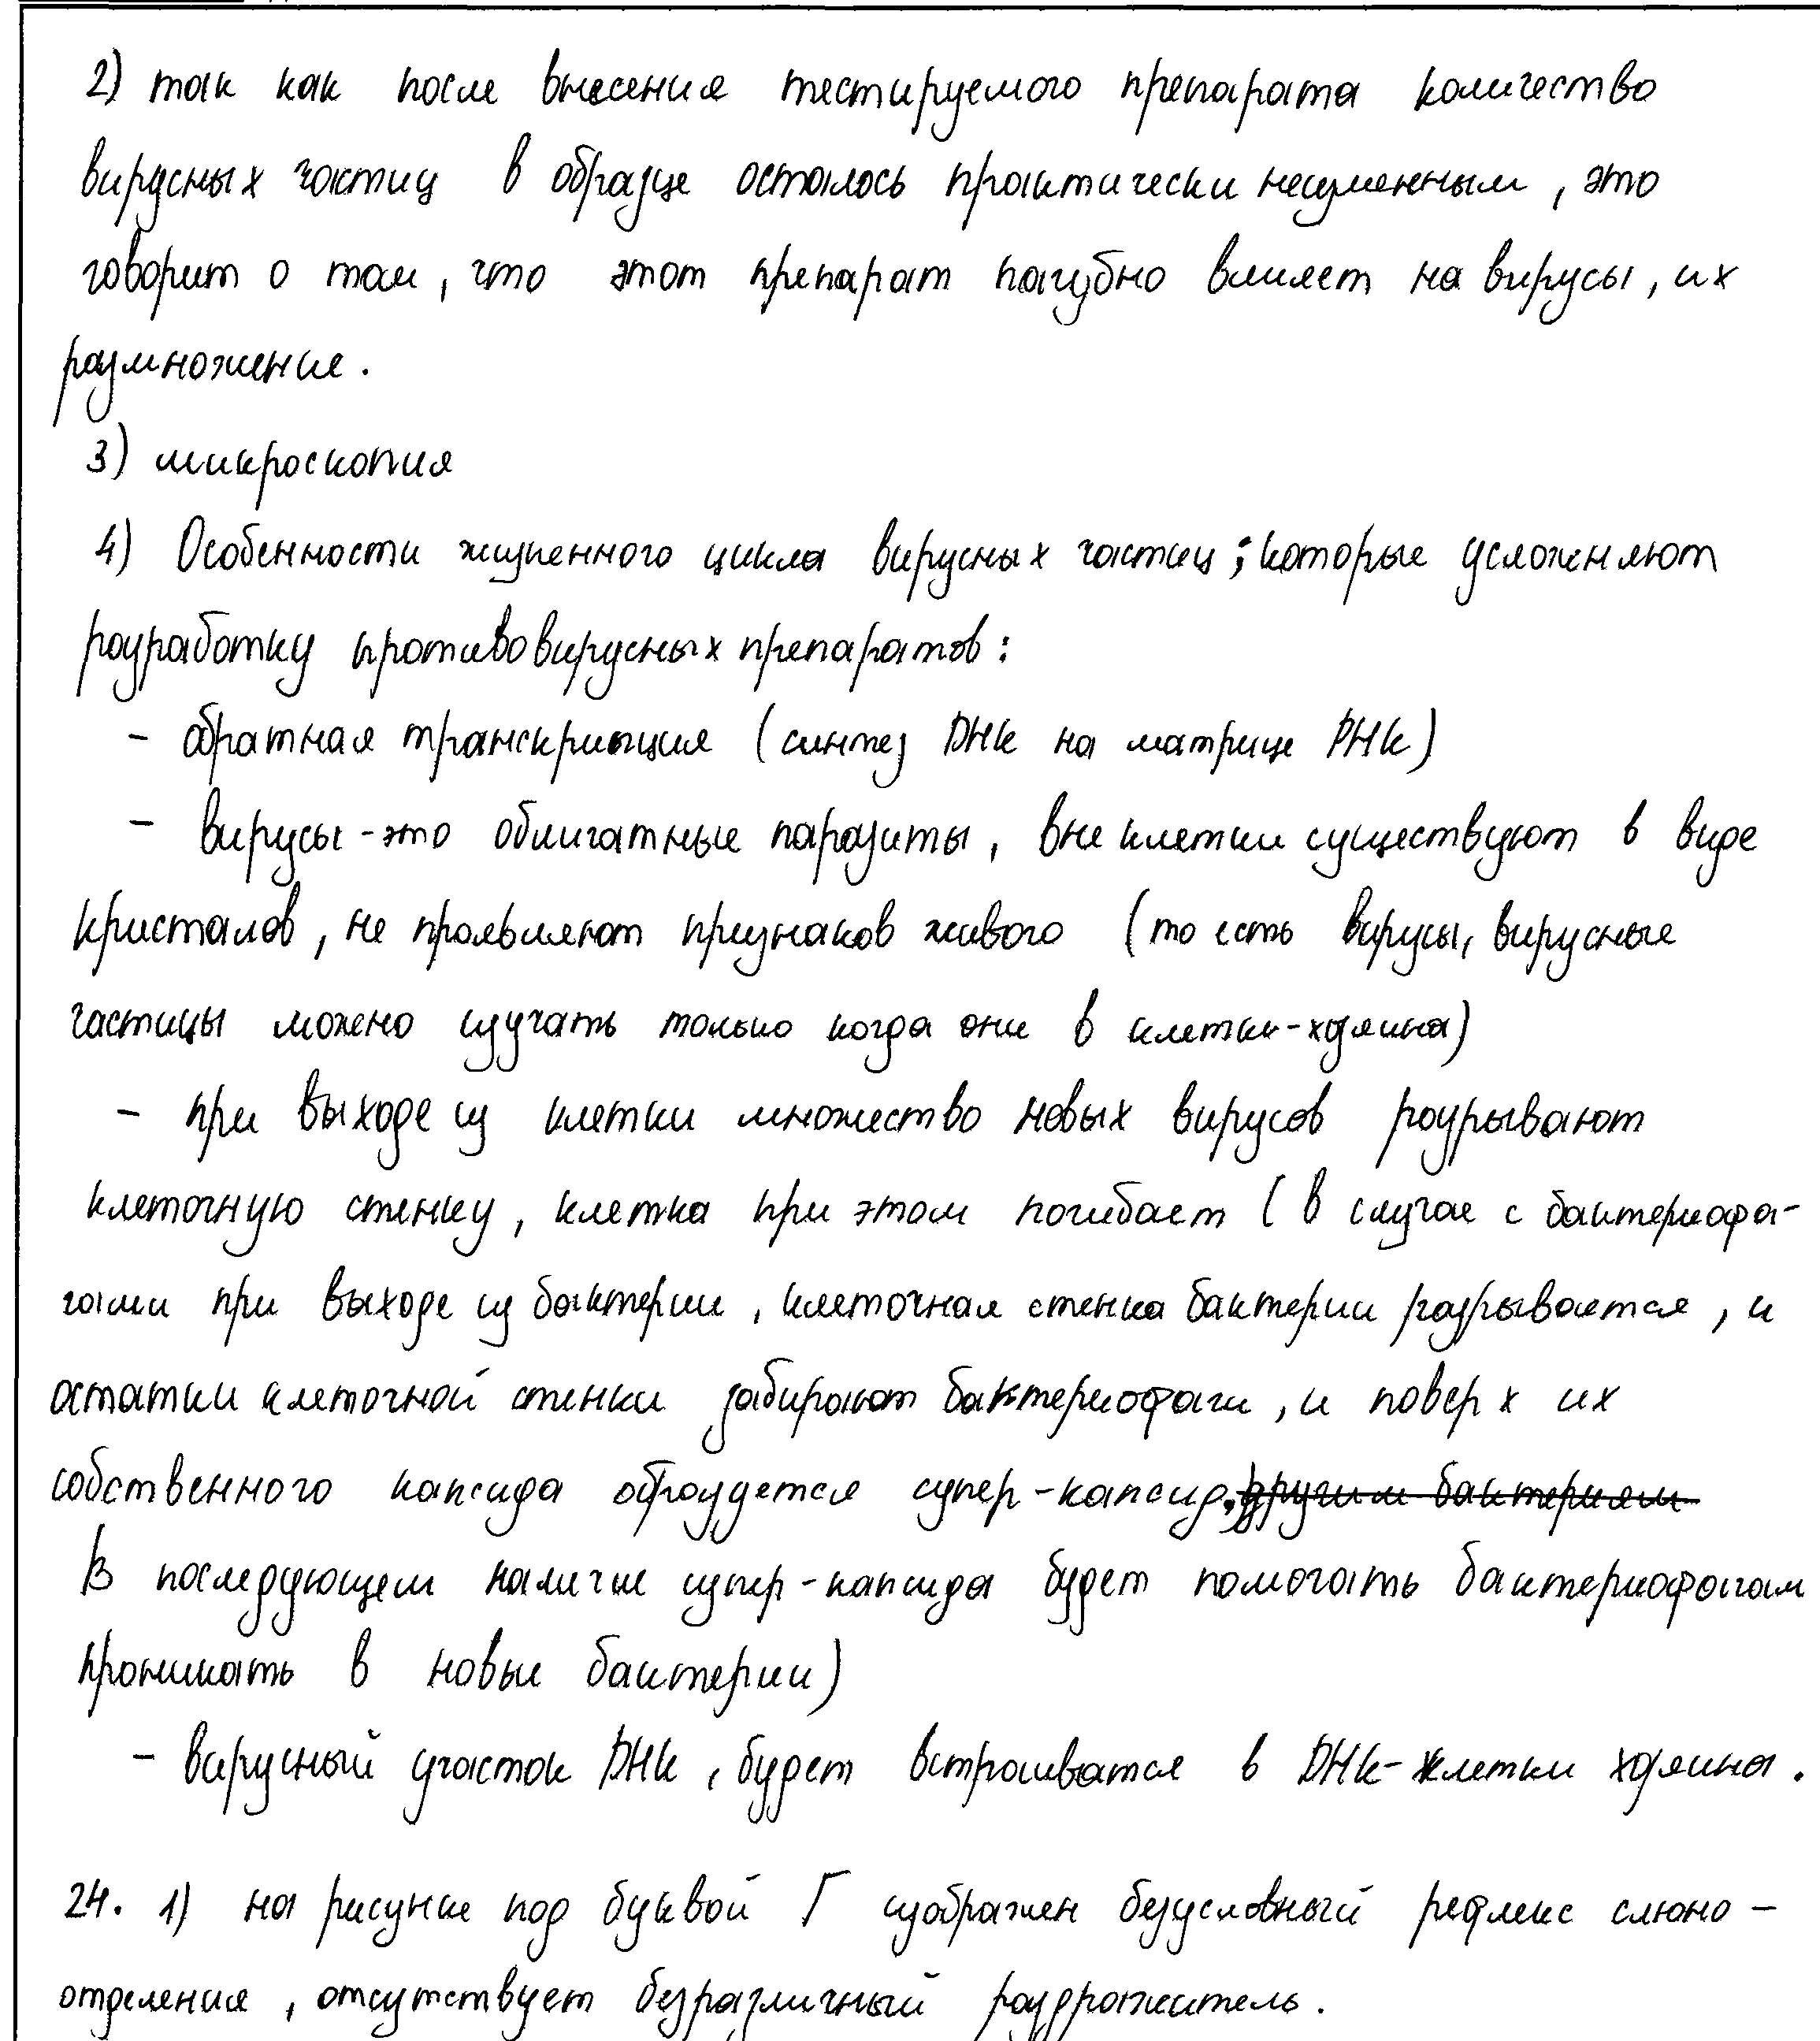 2) так как после внесения тестируемого препарата количество
вирусных частиц в образце осталось практически неизменным, это
говорит о том, что этот препарат пагубно влияет на вирусы, их
размножение.
3) микроскопия
4) Особенности жизненного цикла вирусных частиц; которые усложняют
разработку противовирусных препаратов:
- обратная транскрипция (синтез ДНК на матрице РНК)
- вирусы-это облигатные паразиты, вне клетки существуют в виде
кристалов, не проявляют признаков живого (то есть вирусы, вирусные
частицы можно изучать только когда они в клетки-хозяина)
- при выходе из клетки множество новых вирусов разрывают
клеточную стенку, клетка при этом погибает (в случае с бактериофа-
гами при выходе из бактерии, клеточная стенка бактерии разрывается, и
остатки клеточной стенки забирают бактериофаги, и поверх их
собственного капсида образуется супер-капсид. другим бактериям
В последующем наличие супер-капсида будет помогать бактериофагам
проникать в новые бактерии)
- вирусный участок ДНК, будет встроиватся в ДНК-клетки хозяина.
24. 1) на рисунке под буквой Г изображен безусловный рефлекс слюно-
отделения, отсутствует безразличный раздражитель.